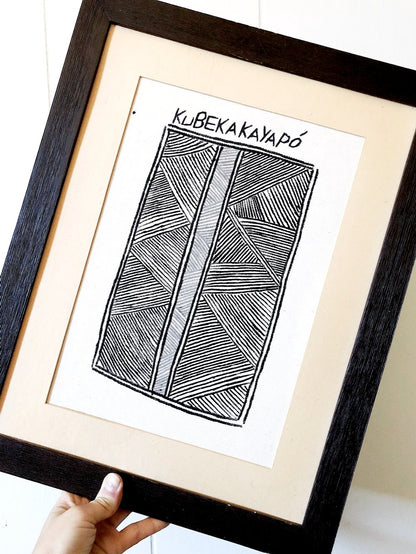 KuBEKAKAYAPÓ